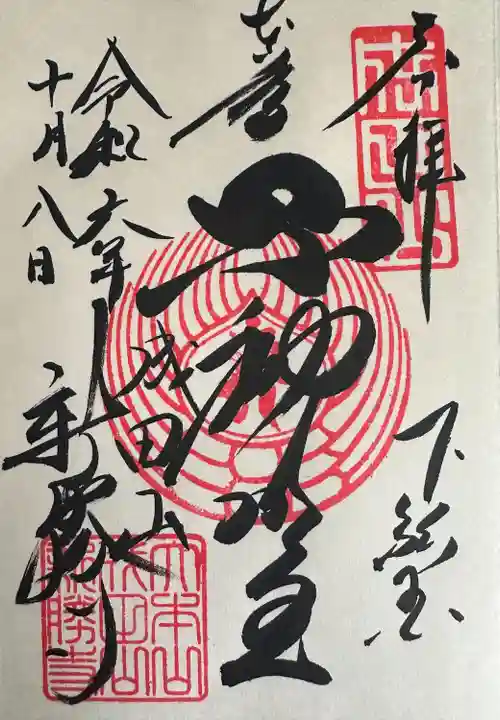 奉拝
下総国
本尊
不動明王
成田山
新勝寺
令和六年
十月八日
大本山
成田山
新勝寺